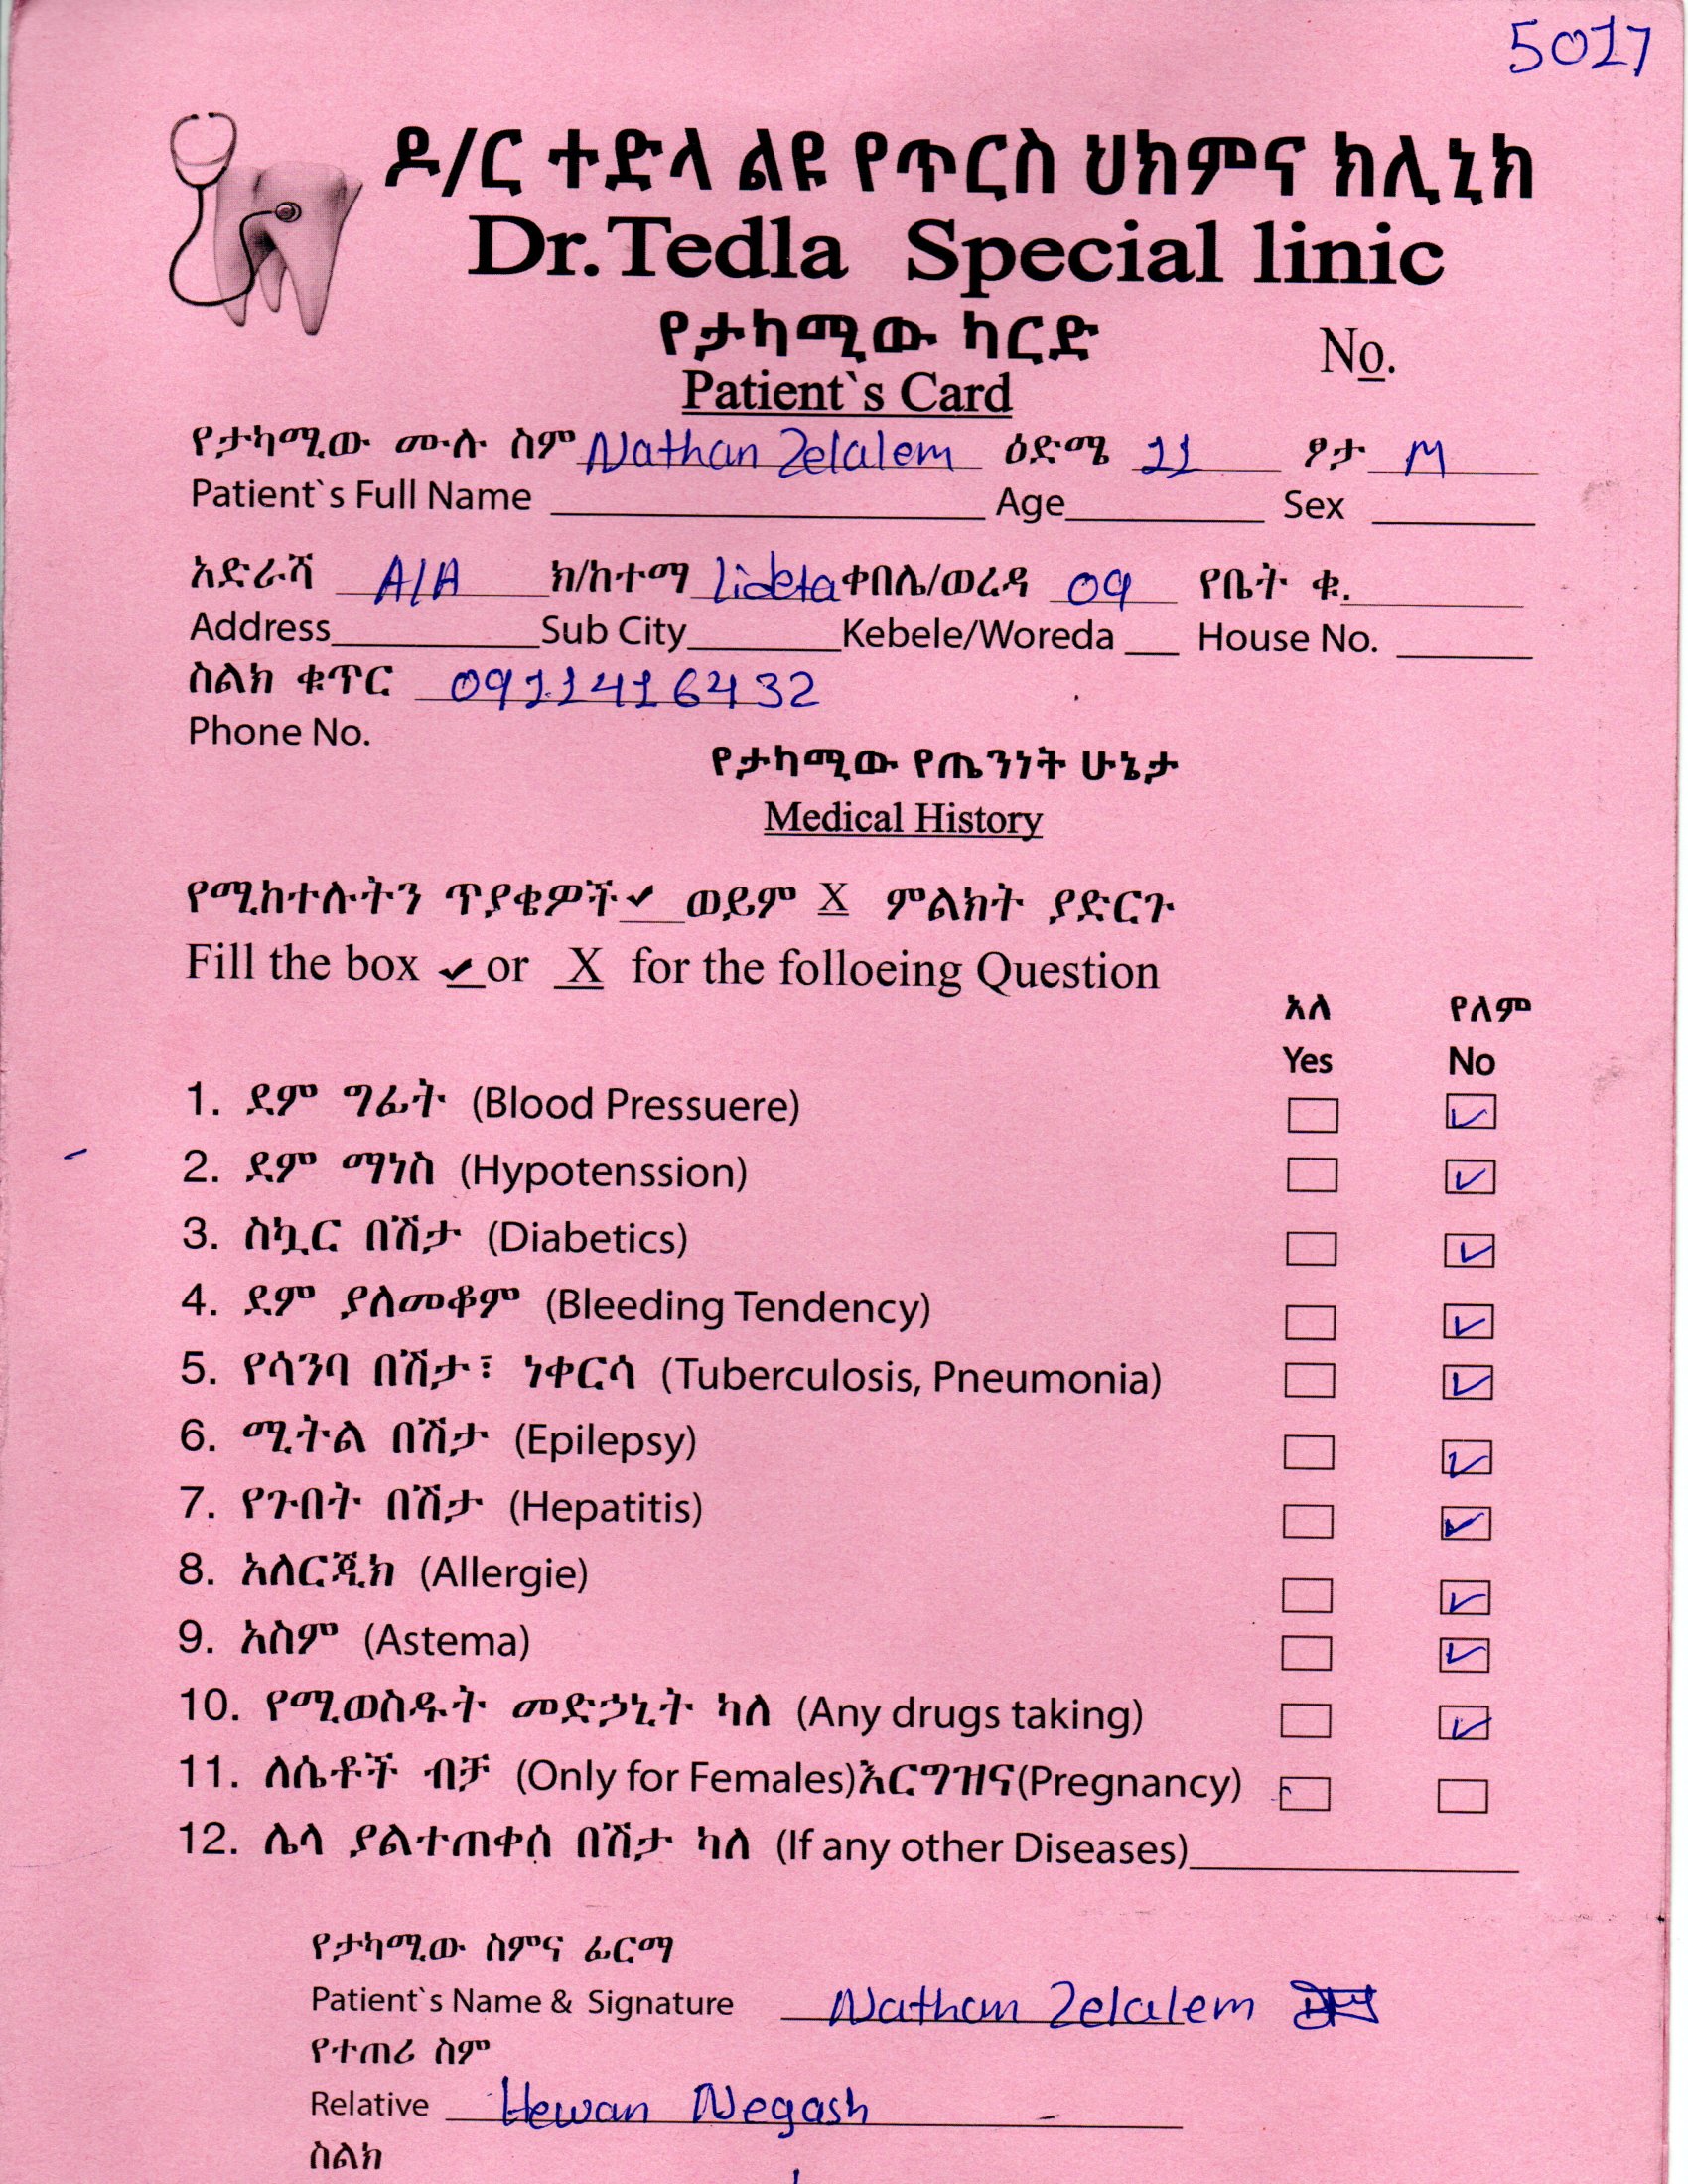 5017
ዶ/ር ተድላ ልዩ የጥርስ ህክምና ክሊኒክ
Dr.Tedla Special linic
የታካሚው ካርድ
No.
Patient`s Card
የታካሚው ሙሉ ስም Nathan Zelalem ዕድሜ 11 ፆታ M
Patient`s Full Name Age Sex
አድራሻ A/A ክ/ከተማ lideta ቀበሌ/ወረዳ 09 የቤት ቁ.
Address Sub City Kebele/Woreda House No.
ስልክ ቁጥር 0911416432
Phone No.
የታካሚው የጤንነት ሁኔታ
Medical History
የሚከተሉትን ጥያቄዎች ✓ ወይም X ምልክት ያድርጉ
Fill the box ✓ or X for the folloeing Question
አለ የለም
Yes No
1. ደም ግፊት (Blood Pressuere) ✓
2. ደም ማነስ (Hypotenssion) ✓
3. ስኳር በሽታ (Diabetics) ✓
4. ደም ያለመቆም (Bleeding Tendency) ✓
5. የሳንባ በሽታ፣ ነቀርሳ (Tuberculosis, Pneumonia) ✓
6. ሚትል በሽታ (Epilepsy) ✓
7. የጉበት በሽታ (Hepatitis) ✓
8. አለርጂክ (Allergie) ✓
9. አስም (Astema) ✓
10. የሚወስዱት መድኃኒት ካለ (Any drugs taking) ✓
11. ለሴቶች ብቻ (Only for Females)እርግዝና(Pregnancy)
12. ሌላ ያልተጠቀሰ በሽታ ካለ (If any other Diseases)
የታካሚው ስምና ፊርማ
Patient`s Name & Signature Nathan Zelalem
የተጠሪ ስም
Relative Hewan Negash
ስልክ